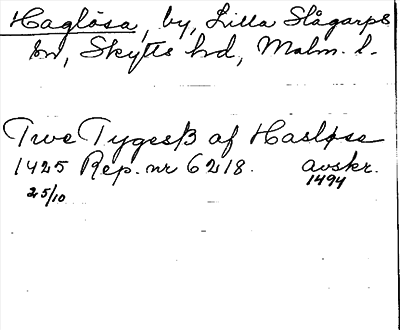 Haglösa, by, Lilla Slågarps
sn, Skytts hd, Malm. l.
Twe Tygesß af Hasløse
1425 Rep. nr 6218. avskr.
25/10 1494